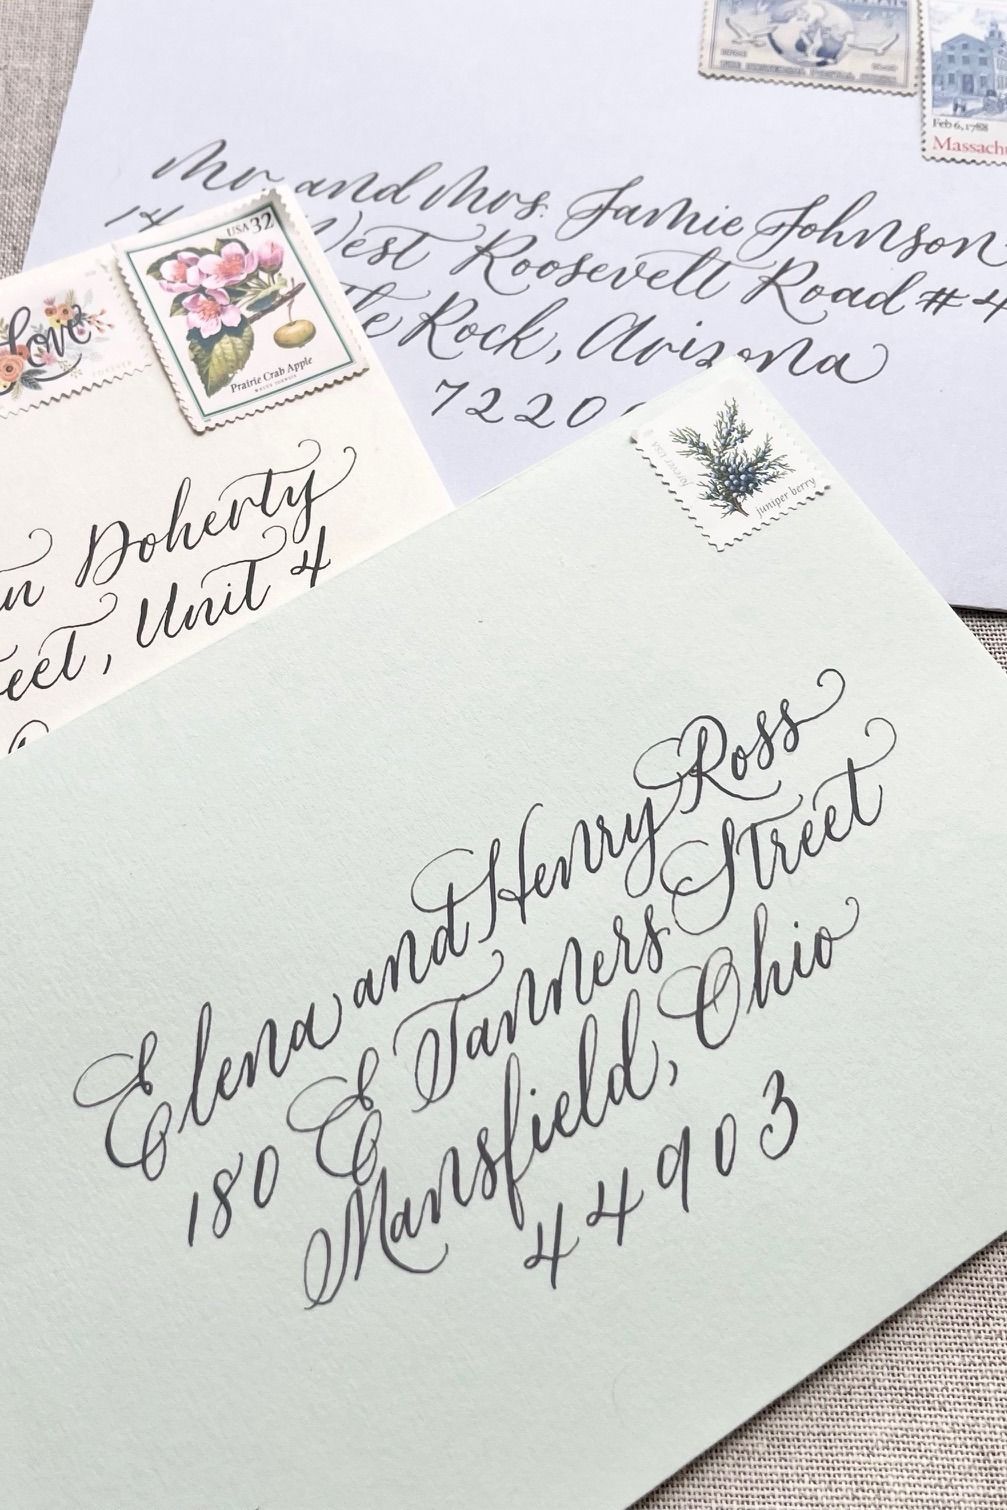 Feb 6, 1788
Massachu
Mr. and Mrs. Jamie Johnson
14 West Roosevelt Road #4
tle Rock, Arizona
7220
USA 32
Prairie Crab Apple
Love
FOREVER
n Doherty
eet, Unit 4
forever USA
juniper berry
Elena and Henry Ross
180 E Tanners Street
Mansfield, Ohio
44903